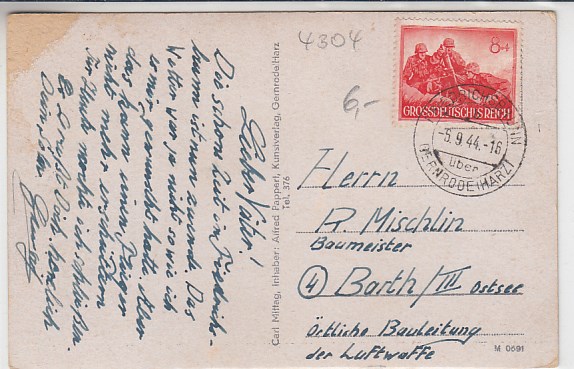 4304
6,-
8+4
GROSSDEUTSCHES REICH
-5.9.44.-16
über
GERNRODE(HARZ)
Lieber Vater!
Die schöne Zeit in Friedrichs-
brunn ist nun zu Ende. Das
Wetter war ja nicht so wie ich
es mir gewünscht hatte. Aber
das kann einen Krieger
nicht mehr erschüttern.
Für Heute möchte ich schließen.
Es grüßt Dich herzlich
Dein Sohn
Carl Mittag, Inhaber: Alfred Pappert, Kunstverlag, Gernrode/Harz
Tel. 376
Herrn
R. Mischlin
Baumeister
④ Barth/III Ostsee
Örtliche Bauleitung
der Luftwaffe
M 0691